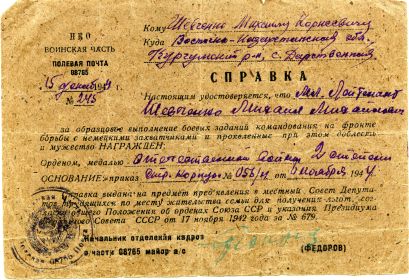 НКО
ВОИНСКАЯ ЧАСТЬ
ПОЛЕВАЯ ПОЧТА
08765
15 декабря
№ 245
Кому Шевченко Михаилу Корнеевичу
Куда Восточно-Казахстанская обл.
р-н, с.
СПРАВКА
Настоящим удостоверяется, что Мл. Лейтенант
Шевченко Михаил Михайлович
за образцовое выполнение боевых заданий командования на фронте
борьбы с немецкими захватчиками и проявленные при этом доблесть
и мужество НАГРАЖДЕН:
Орденом, медалью Отечественной Войны 2 степени
ОСНОВАНИЕ: приказ Корпуса № 056/н 6 ноября 1944
справка выдана на предмет предъявления в местный Совет Депута-
тов трудящихся по месту жительства семьи для получения льгот, со-
гласно Положения об орденах Союза ССР и указания Президиума
Верховного Совета СССР от 17 ноября 1942 года за № 679.
Начальник отделения кадров
в части 08765 майор а/с
(ФЕДОРОВ)